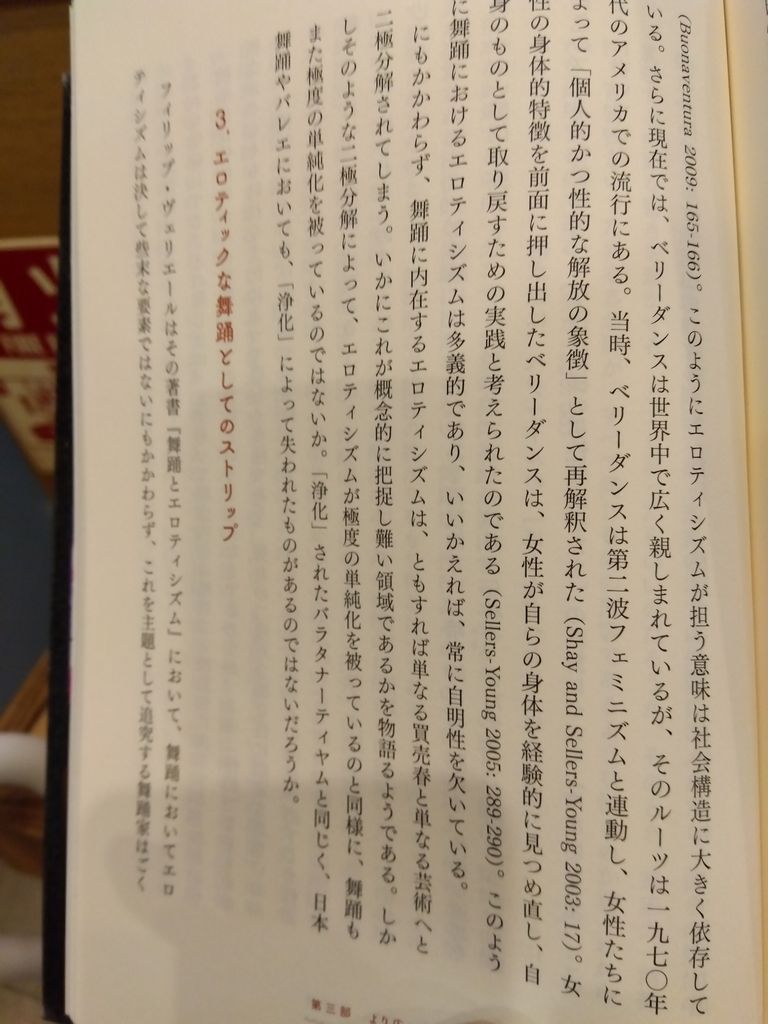 (Buonaventura 2009: 165-166)。このようにエロティシズムが担う意味は社会構造に大きく依存して
いる。さらに現在では、ベリーダンスは世界中で広く親しまれているが、そのルーツは一九七〇年
代のアメリカでの流行にある。当時、ベリーダンスは第二波フェミニズムと連動し、女性たちに
よって「個人的かつ性的な解放の象徴」として再解釈された (Shay and Sellers-Young 2003: 17)。女
性の身体的特徴を前面に押し出したベリーダンスは、女性が自らの身体を経験的に見つめ直し、自
身のものとして取り戻すための実践と考えられたのである (Sellers-Young 2005: 289-290)。このよう
に舞踊におけるエロティシズムは多義的であり、いいかえれば、常に自明性を欠いている。
にもかかわらず、舞踊に内在するエロティシズムは、ともすれば単なる買売春と単なる芸術へと
二極分解されてしまう。いかにこれが概念的に把捉し難い領域であるかを物語るようである。しか
しそのような二極分解によって、エロティシズムが極度の単純化を被っているのと同様に、舞踊も
また極度の単純化を被っているのではないか。「浄化」されたバラタナーティヤムと同じく、日本
舞踊やバレエにおいても、「浄化」によって失われたものがあるのではないだろうか。
3、エロティックな舞踊としてのストリップ
フィリップ・ヴェリエールはその著書『舞踊とエロティシズム』において、舞踊においてエロ
ティシズムは決して些末な要素ではないにもかかわらず、これを主題として追究する舞踊家はごく
第三部 より